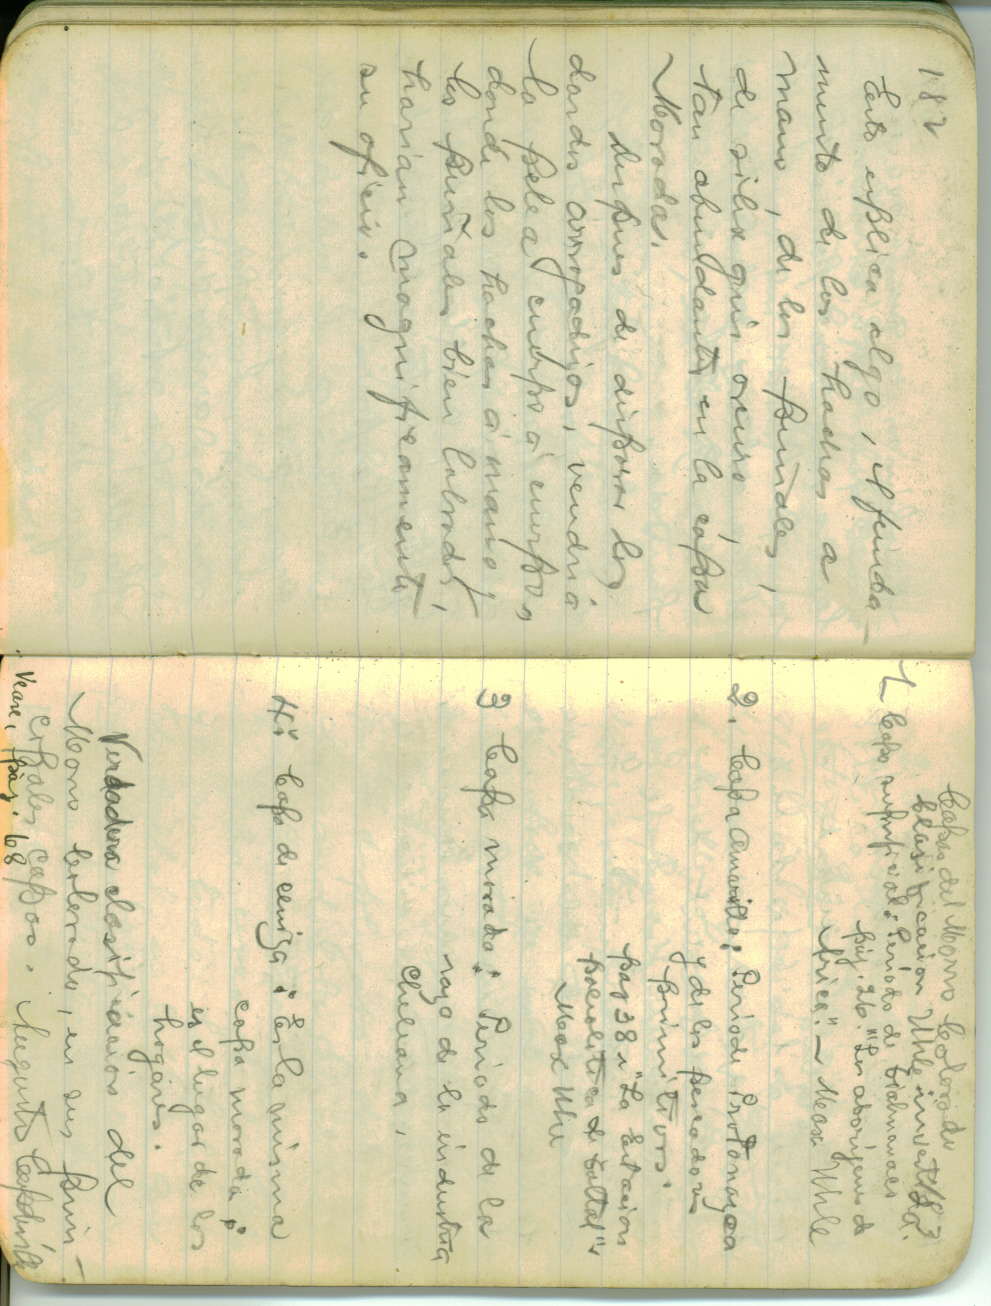 182
Esto explica algo, el funda-
mento de las hachas a
mano, de los puñales,
de silex gris oscuro,
tan abundantes en la capa
Morada.
Despues de disparar los
dardos arropadijos, vendria
la pelea cuerpo á cuerpo,
donde las hachas á mano,
los puñales bien labrados,
harian magnificamente
su oficio.
183
Capas del Morro Colorado
Clasificacion Uhle invertida.
1 Capa superficial: Periodo de Tiahuanaco
pág. 26. "Los aborijenes de
Arica" – Max Uhle
2. Capa Amarilla: Periodo Protonazca
y de los pescadores
primitivos.
pag 38 "La Estacion
paleolitica de Taltal"
Max Uhle
3 Capa morada: Periodo de la
raza de la industria
Chelleana,
4ª Capa de ceniza: Es la misma
capa morada:
es el lugar de los
hogares.
Verdadera clasificacion del
Morro Colorado, en sus prin-
cipales capas. Augusto Capdeville
Vease, pág. 68